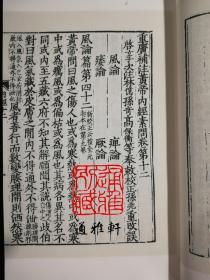 重廣補注黃帝內經素問卷第十二
啓玄子次注林億孫奇高保衡等奉敕校正孫兆重改誤
風論 痺論
痿論 厥論
風論篇第四十二
新校正云按全元
起本在第九卷
黃帝問曰風之傷人也或為寒
中或為癘風或為偏枯或為風也其病各異其名
同或內至五藏六府不知其解願聞其說
對曰風氣藏於皮膚之間內不得通外不得泄
風者善行而數變腠理開則洒然寒
通雅軒